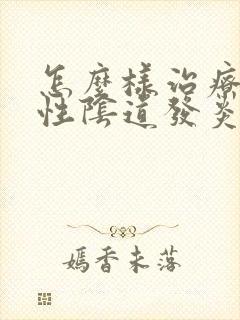 怎麼樣治療
性陰道發炎
媽香未落